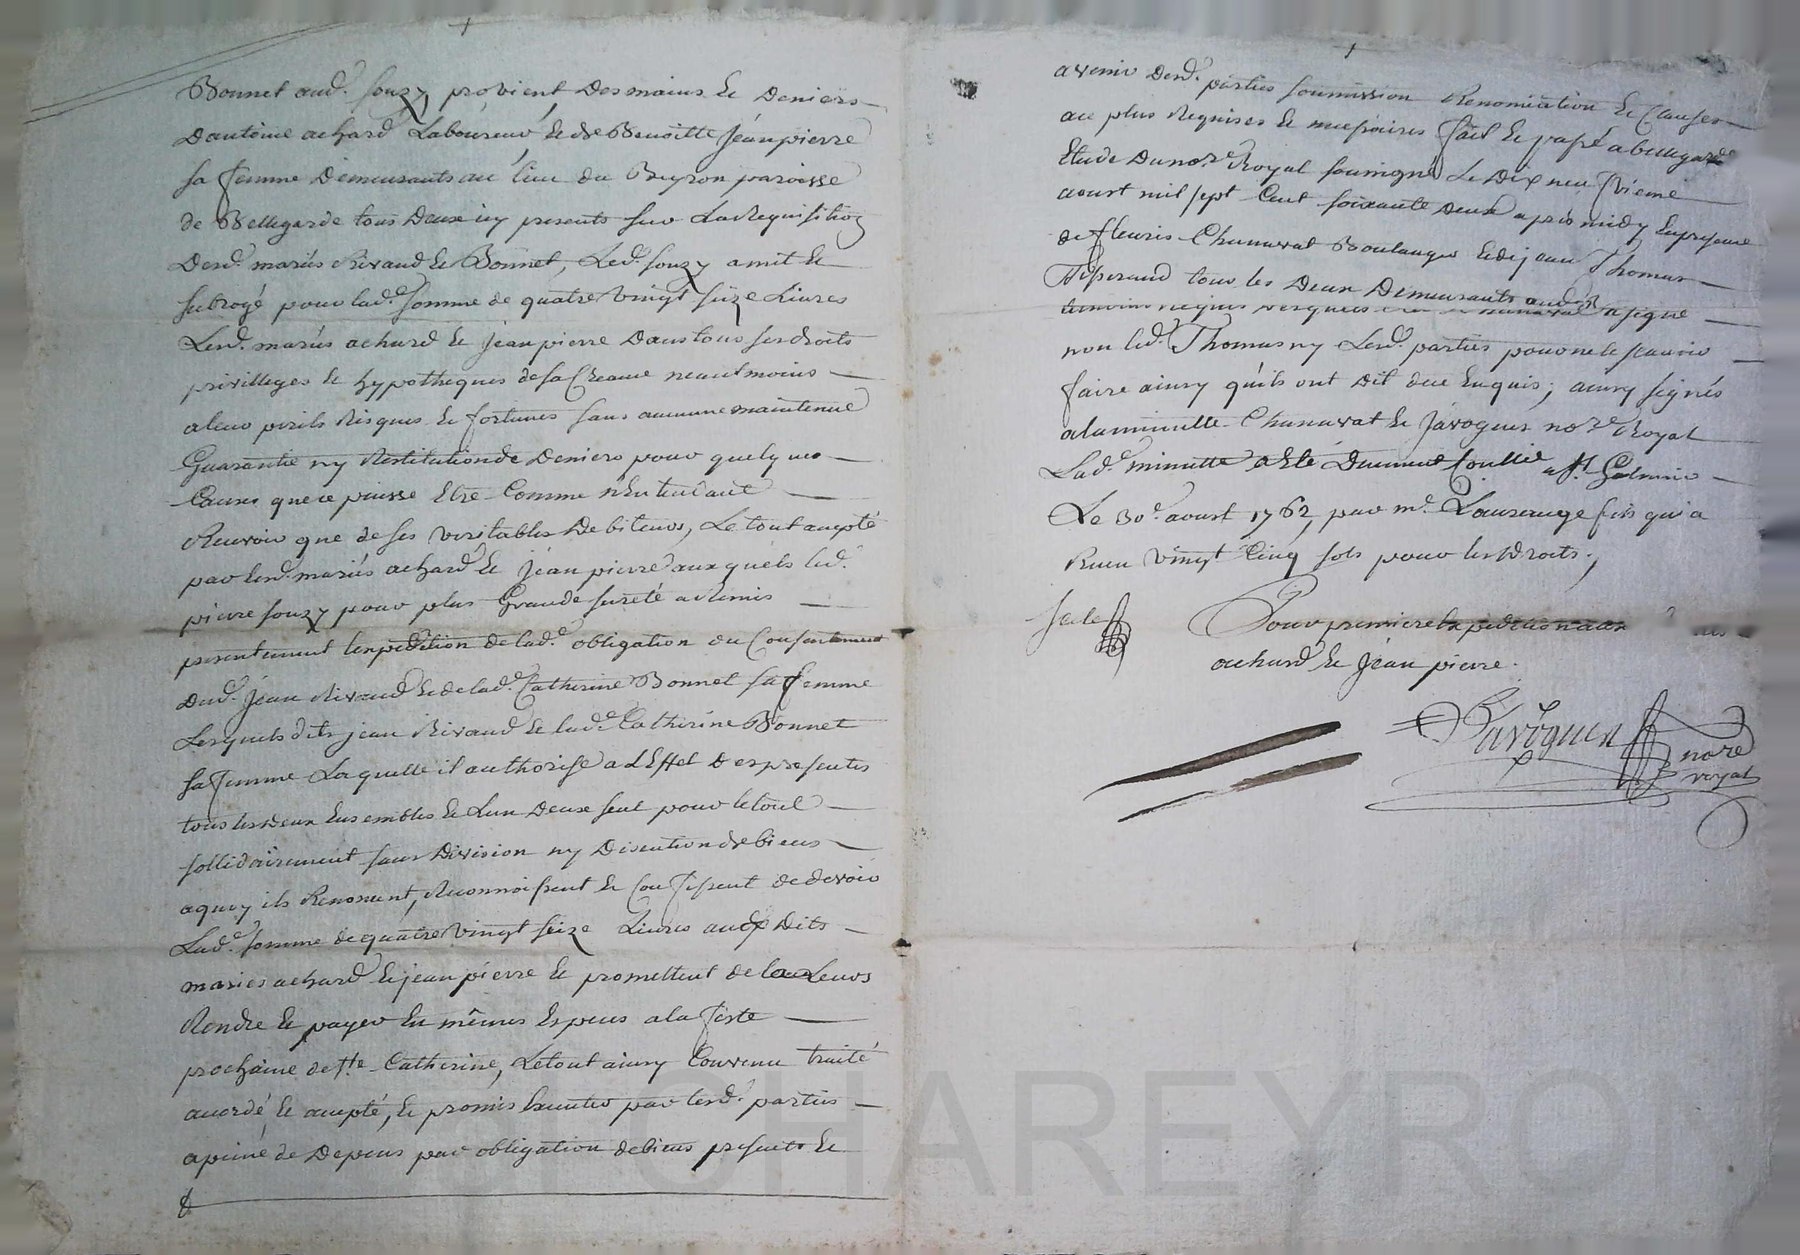 Bonnet aud. souzy, provient des mains et deniers
d'antoine achard Laboureur, et de Benoitte Jeanpierre
sa femme demeurants au lieu du Beyron paroisse
de Bellegarde tous deux icy presents sur La Requisition
desd. mariés Rivaud et Bonnet, Led. souzy a mit et
subrogé pour lad.e somme de quatre vingt seize Livres
Lesd. mariés achard et jeanpierre dans tous ses droits
privilleges et hypotheques de sa Creance neantmoins
a leur perils Risques et fortunes sans aucune maintenue
Guarantie ny Restitution de deniers pour quelques
Causes que ce puisse Etre Comme n'Entendant
Recevoir que de ses veritables debiteurs, Le tout accepté
par lesd. mariés achard et jeanpierre auxquels led.
pierre souzy pour plus Grande sureté a Remis
presentement lexpedition de lad.e obligation du Consentement
dud. jean Rivaud et de lad.e Catherine Bonnet sa femme
Lesquels dits jean Rivaud et lad.e Catherine Bonnet
sa femme Laquelle il authorise a L'Effet des presentes
tous les deux Ensembles et Lun deux seul pour le tout
sollidairement sans division ny discution de biens
a quoy ils Renoncent, Reconnoissent et Confessent de devoir
Lad.e somme de quatre vingt seize Livres aux dits
mariés achard et jeanpierre et promettent de la Leurs
Rendre et payer En mêmes Especes a la feste
prochaine de ste. Catherine, Le tout ainsy Convenu traité
acordé, et accepté, et promis Executer par lesd. parties
a peine de depens par obligation de biens presents et
avenir desd. parties soumission Renonciation et Clauses
au plus Requises et necessaires fait et passé a bellegarde
Etude du no.re Royal soussigné Le dix neufvieme
aoust mil sept Cent soixante deux apres midy En presence
de fleuris Chanavat Boulanger et de jean Thomas
Tisserand tous les deux demeurants aud.
temoins requis a signé
non led. Thomas ny Lesd. parties pour ne le scavoir
faire ainsy qu'ils ont dit de ce Enquis; ainsy signés
a la minutte Chanavat et Javogues no.re Royal
Lad.e minutte a Eté duement Conllée a St. Galmier
Le 30.e aoust 1762, par m.e Lauzange fils qui a
Receu vingt Cinq sols pour les droits.
Pour premiere Expedition aux
achard et jeanpierre.
Javogues
no.re
royal
CHAREYRON